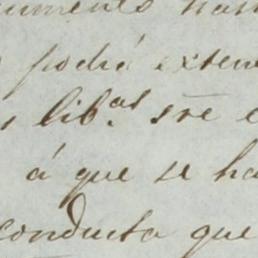 podrá exten
lib.as sre
á que se ha
conducta que